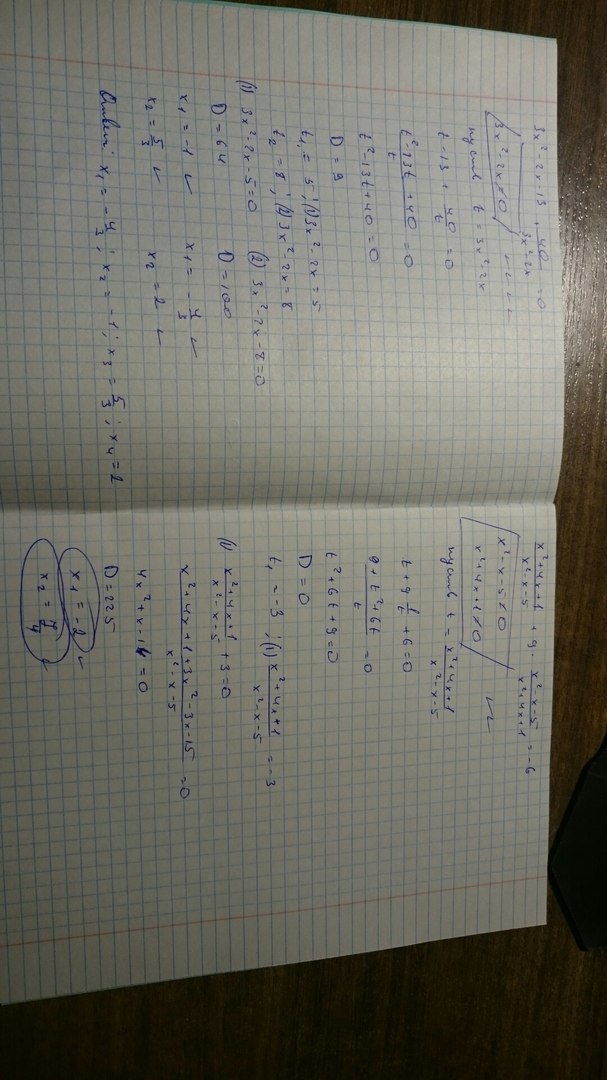 3x²-2x-13 + 40/(3x²-2x) = 0
3x²-2x≠0
пусть t = 3x²-2x
t-13 + 40/t = 0
(t²-13t+40)/t = 0
t²-13t+40=0
D=9
t₁=5; (1) 3x²-2x=5
t₂=8; (2) 3x²-2x=8
(1) 3x²-2x-5=0 (2) 3x²-2x-8=0
D=64 D=100
x₁=-1 x₁=-4/3
x₂=5/3 x₂=2
Ответ: x₁=-4/3; x₂=-1; x₃=5/3; x₄=2
(x²+4x+1)/(x²-x-5) + 9·(x²-x-5)/(x²+4x+1) = -6
x²-x-5≠0
x²+4x+1≠0
пусть t = (x²+4x+1)/(x²-x-5)
t+9·1/t+6=0
(9+t²+6t)/t = 0
t²+6t+9=0
D=0
t₁=-3; (1) (x²+4x+1)/(x²-x-5) = -3
(1) (x²+4x+1)/(x²-x-5) + 3=0
(x²+4x+1+3x²-3x-15)/(x²-x-5) = 0
4x²+x-14=0
D=225
x₁=-2
x₂=7/4